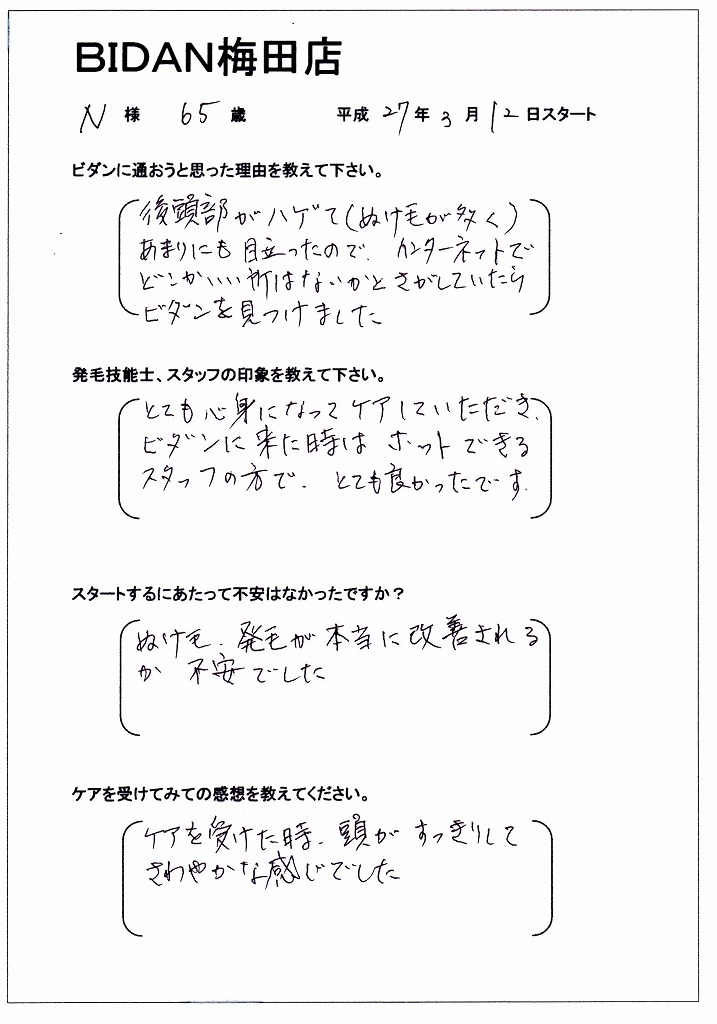 BIDAN梅田店
N 様 65 歳 平成 27 年 3 月 12 日スタート
ビダンに通おうと思った理由を教えて下さい。
後頭部がハゲて(ぬけ毛が多く)
あまりにも目立ったので、インターネットで
どこかいい所はないかとさがしていたら
ビダンを見つけました
発毛技能士、スタッフの印象を教えて下さい。
とても心身になってケアしていただき、
ビダンに来た時は ホットできる
スタッフの方で、とても良かったです。
スタートするにあたって不安はなかったですか？
ぬけ毛、発毛が本当に改善される
か 不安でした
ケアを受けてみての感想を教えてください。
ケアを受けた時、頭が すっきりして
さわやかな感じでした